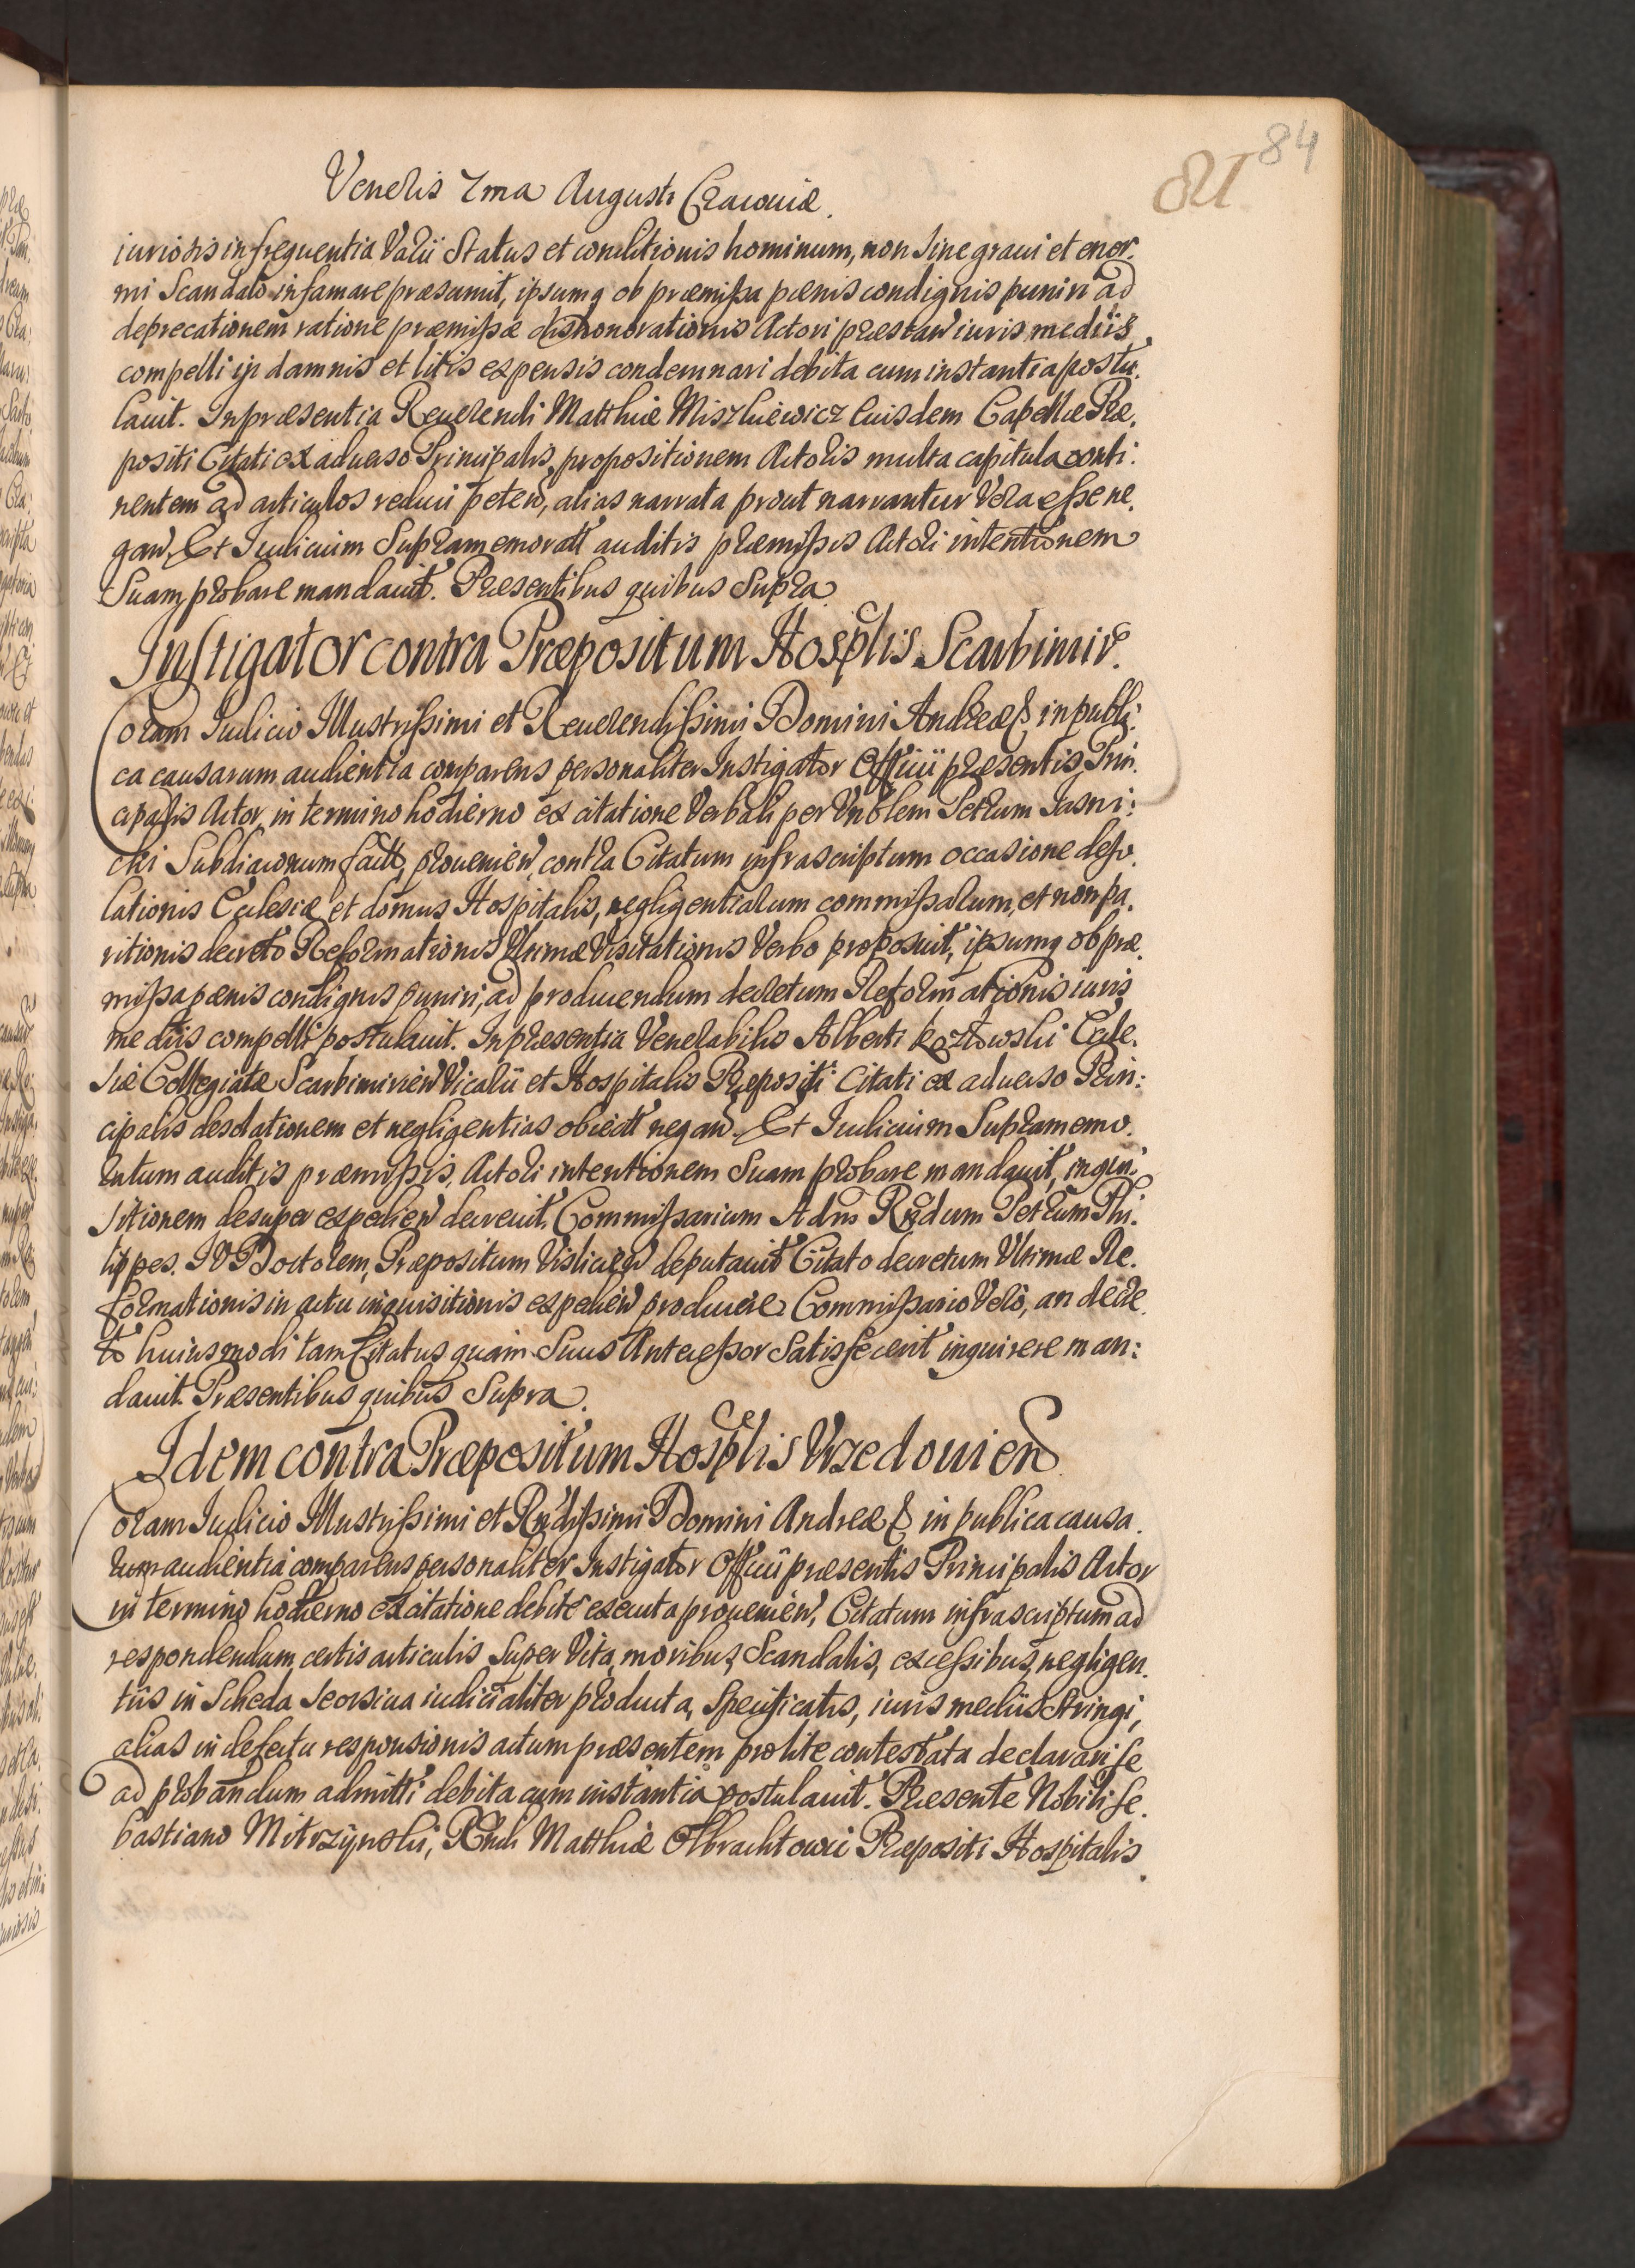 84
81
Veneris 7ma Augusti Cracouiæ.
iuriosis in frequentia Varii Status et conditionis hominum, non sine graui et enor:
mi Scandalo infamare præsumit, ipsumq ob præmissa pœnis condignis puniri ad
deprecationem ratione præmissæ dishonorationis Actori præstan iuris mediis
compelli in damnis et litis expensis condemnari debita cum instantia postu:
lauit. In præsentia Reuerendi Matthiæ Miszkiewicz Eiusdem Capellæ Præ:
positi Citati ex aduerso Principalis, propositionem Actoris multa capitula conti:
nentem ad articulos reduci peten, alias narrata prout narrantur Vera esse ne:
gan. Et Iudicium Supramemorat auditis præmissis Actori intentionem
Suam probare mandauit. Præsentibus quibus Supra
Instigator contra Præpositum Hosplis Scarbimir.
Coram Iudicio Illustrissimi et Reuerendissimi Domini Andreæ in publi:
ca causarum audientia comparens personaliter Instigator Officii præsentis Prin:
cipalis Actor, in termino hodierno ex citatione Verbali per Vnblem Petrum Jasni:
cki Subdiaconum facta, prouenien, contra Citatum infrascriptum occasione deso:
lationis Ecclesiæ et domus Hospitalis, negligentiarum commissarum, et non pa:
ritionis decreto Reformationis Vltimæ Visitationis Verbo proposuit, ipsumq ob præ:
missa pœnis condignis puniri, ad producendum decretum Reformationis iuris
mediis compelli postulauit. In præsentia Venerabilis Alberti Kozłowski Eccle:
siæ Collegiatæ Scarbimirien Vicarii et Hospitalis Præpositi Citati ex aduerso Prin:
cipalis desolationem et negligentias obiect negan. Et Iudicium Supramemo:
ratum auditis præmissis, Actori intentionem Suam probare mandauit, inqui:
sitionem desuper expedien decreuit, Commissarium Adm Rndum Petrum Phi:
lippes. IV Doctorem, Præpositum Vislicien deputauit Citato decretum Vltimæ Re:
formationis in actu inquisitionis expedien producere Commissario Vero, an decre:
to huiusmodi tam Citatus quam Suus Antecessor Satisfecerit inquirere man:
dauit. Præsentibus quibus Supra.
Idem contra Præpositum Hosplis Vrzedouien
Coram Iudicio Illustrissimi et Rndissimi Domini Andreæ in publica causa:
rum audientia comparens personaliter Instigator Officii præsentis Principalis Actor
in termino hodierno ex citatione debite executa prouenien, Citatum infrascriptum ad
respondendum certis articulis Super Vita, moribus, Scandalis, excessibus, negligen:
tiis in Scheda Seorsiua iudicialiter producta, Specificatis, iuris mediis Stringi,
alias in defectu responsionis actum præsentem pro lite contestata declarari se
ad probandum admitti debita cum instantia postulauit. Præsente Nobili Se:
bastiano Mitrzynski, Rndi Matthiæ Olbrachtowic Præpositi Hospitalis